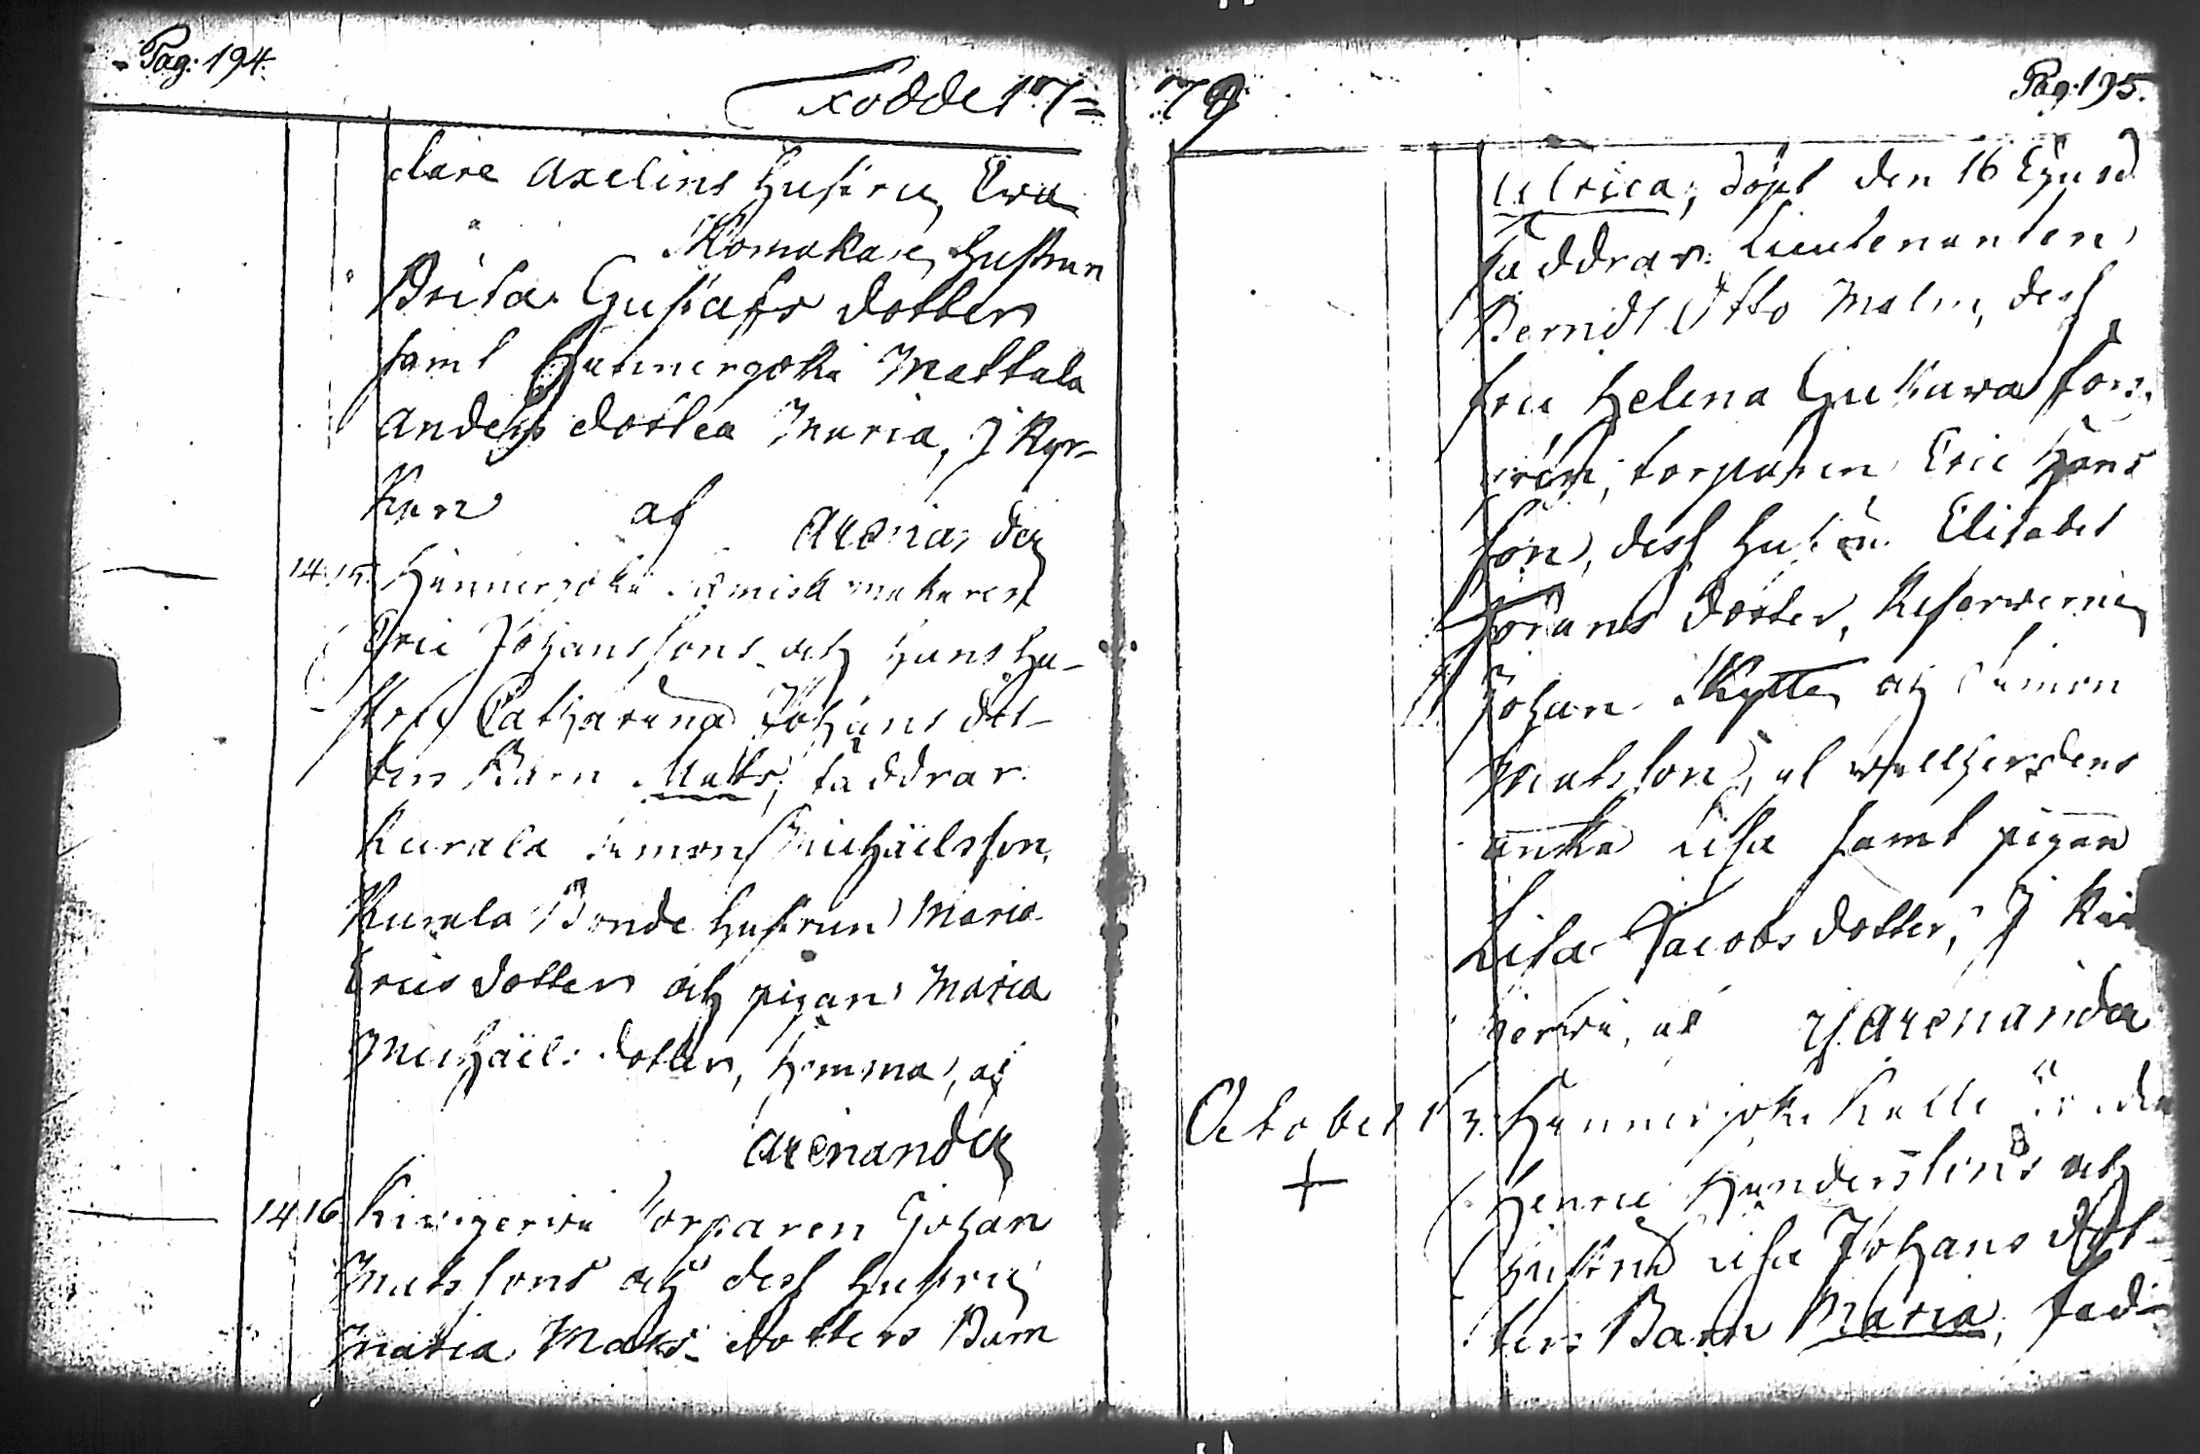 Pag: 194.
Födde 17=
clare Axelins hustru, Ewa
Skomakare hustrun
Brita Gustafs dotter
samt Hunnerjoki Mattala
Anders dotter Maria, J Kyr-
kan af Arenander
14 15. Hunnerjoki makaren
Eric Johanssons och hans hu-
stru Catharina Johans dot-
ters Barn Matts, faddrar
Kurala Simon Michäelsson,
Kurala Bonde hustrun Maria
Erics dotter och pigan Maria
Michäels dotter, hemma, af
Arenander
14 16 Kivijerwi Torparen Johan
Matssons och dess hustru
Maria Mats dotters Barn
79
Pag: 195.
Ulrica, döpt den 16 Ejusd
faddrar: Lieutenanten
Berndt Otto Malm, dess
fru Helena Gustawa
torparen Eric Hans
son, dess hustru Elisabet
Jörans dotter,
Johan Kytte och Simon
Matsson,
änka Lisa samt pigan
Lisa Jacobs dotter, J
jerwi, af J. Arenander
October 1 3. Hunnerjoki Kalli
Henric Hendersons och
hustru Lisa Johans dot-
ters Barn Maria, fad-